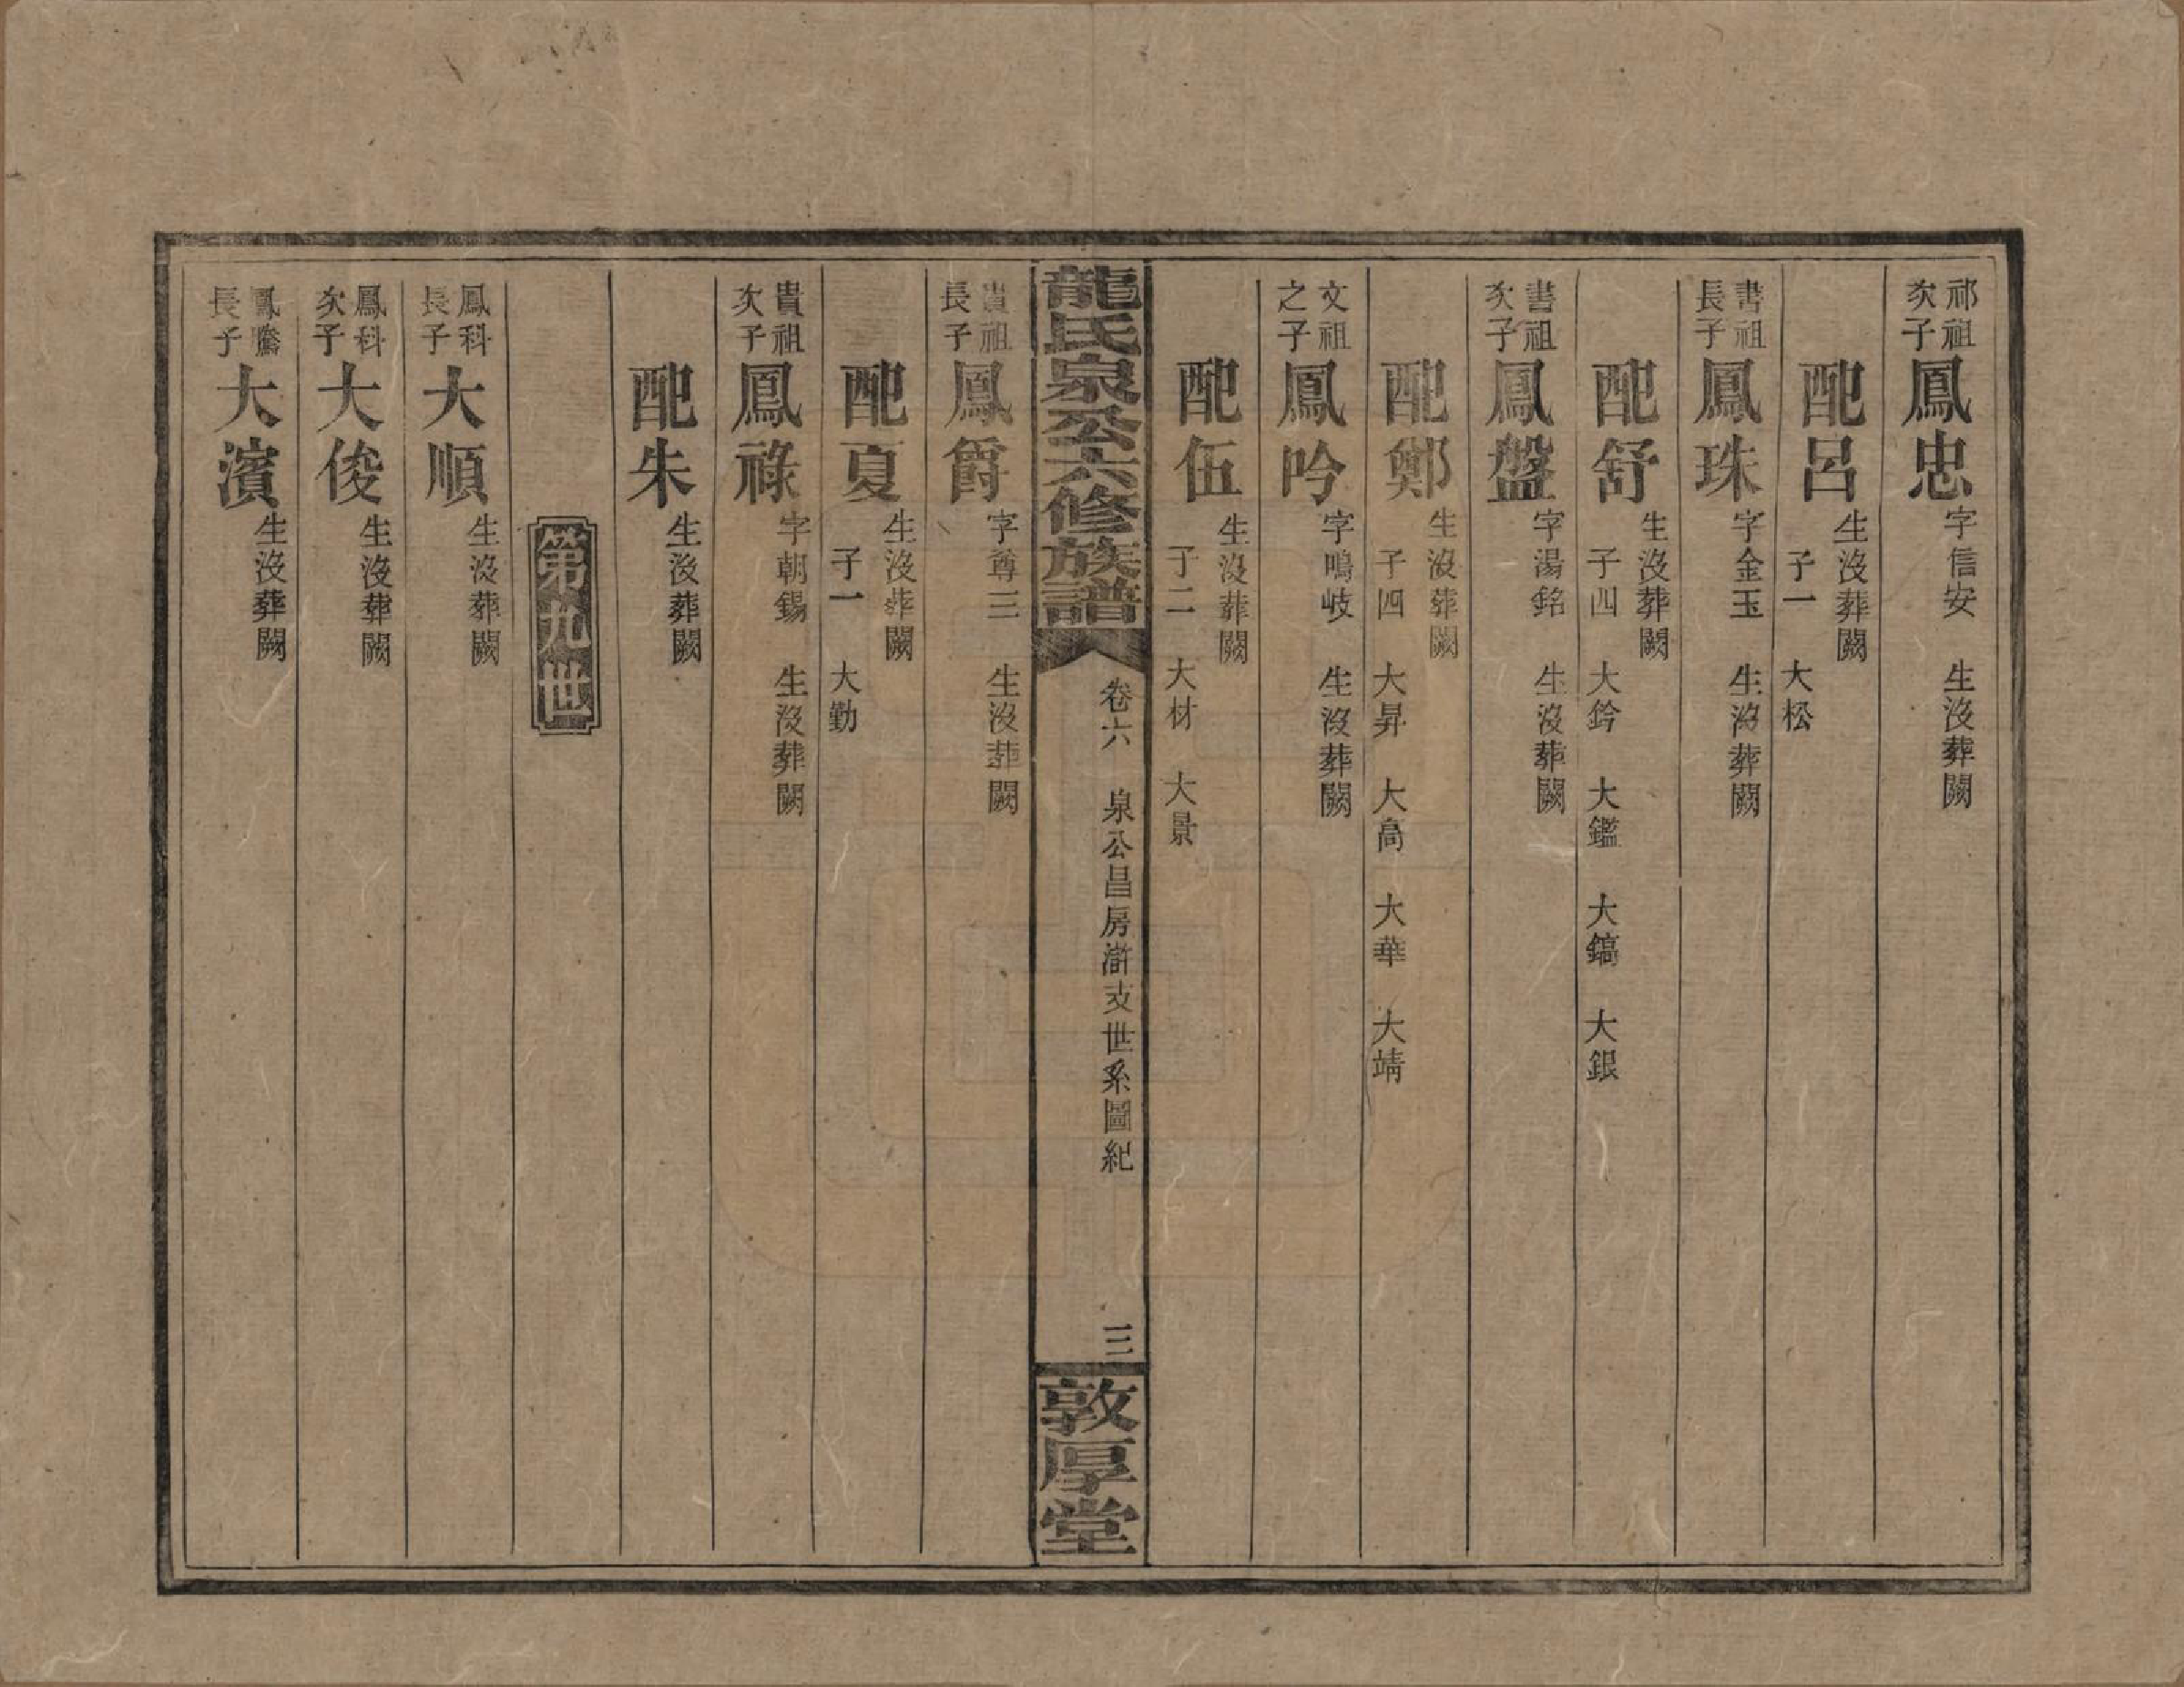 祁祖次子鳳忠字信安　生沒葬闕
配呂生沒葬闕　子一　大松
書祖長子鳳珠字金玉　生沒葬闕
配舒生沒葬闕　子四　大鈐　大鑑　大鎬　大銀
書祖次子鳳盤字湯銘　生沒葬闕
配鄭生沒葬闕　子四　大昇　大高　大華　大靖
文祖之子鳳吟字鳴岐　生沒葬闕
配伍生沒葬闕　子二　大材　大景
龍氏泉公六修族譜　卷六　泉公昌房滸支世系圖紀　三　敦厚堂
貴祖長子鳳爵字尊三　生沒葬闕
配夏生沒葬闕　子一　大勤
貴祖次子鳳祿字朝錫　生沒葬闕
配朱生沒葬闕
第九世
鳳科長子大順生沒葬闕
鳳科次子大俊生沒葬闕
鳳騰長子大濱生沒葬闕